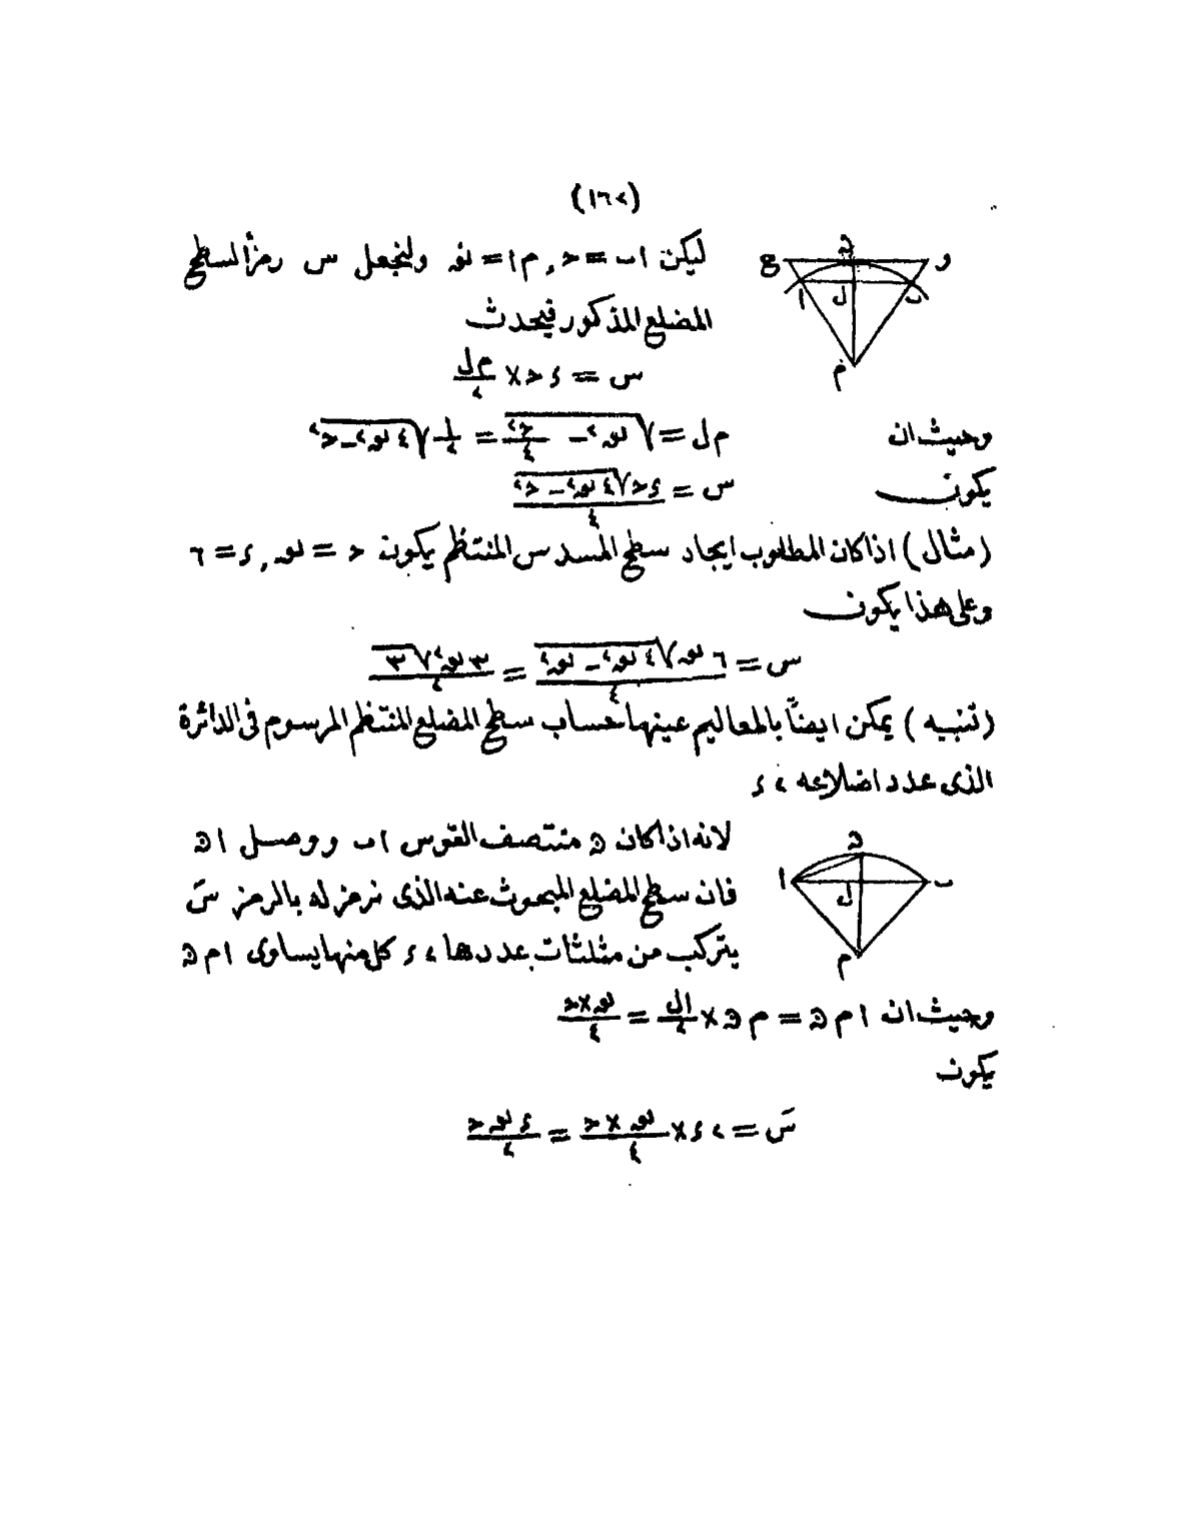 (١٦٢)
ليكن ا ب = ح , م ا = نو ولنجعل س رمزاً لسطح
المضلع المذكور فيحدث
س = ء ح × م ل / ٢
وحيث ان م ل = √(نو٢ - ح٢/٤) = ١/٢ √(٤ نو٢ - ح٢)
يكون س = ء ح √(٤ نو٢ - ح٢) / ٤
(مثال) اذا كان المطلوب ايجاد سطح المسدس المنتظم يكون ح = نو , ء = ٦
وعلى هذا يكون
س = ٦ نو √(٤ نو٢ - نو٢) / ٤ = ٣ نو٢ √٣ / ٢
(تنبيه) يمكن ايضاً بالمعاليم عينها حساب سطح المضلع المنتظم المرسوم فى الدائرة
الذى عدد اضلاعه ٢ ء
لانه اذا كان ه منتصف القوس ا ب ووصل ا ه
فان سطح المضلع المبحوث عنه الذى نرمز له بالرمز سَ
يتركب من مثلثات عددها ٢ ء كل منها يساوى ا م ه
وحيث ان ا م ه = م ه × ا ل / ٢ = نو × ح / ٤
يكون
سَ = ٢ ء × نو × ح / ٤ = ء نو ح / ٢
ه
ع
و
ا
ل
ب
م
ه
ا
ل
ب
م